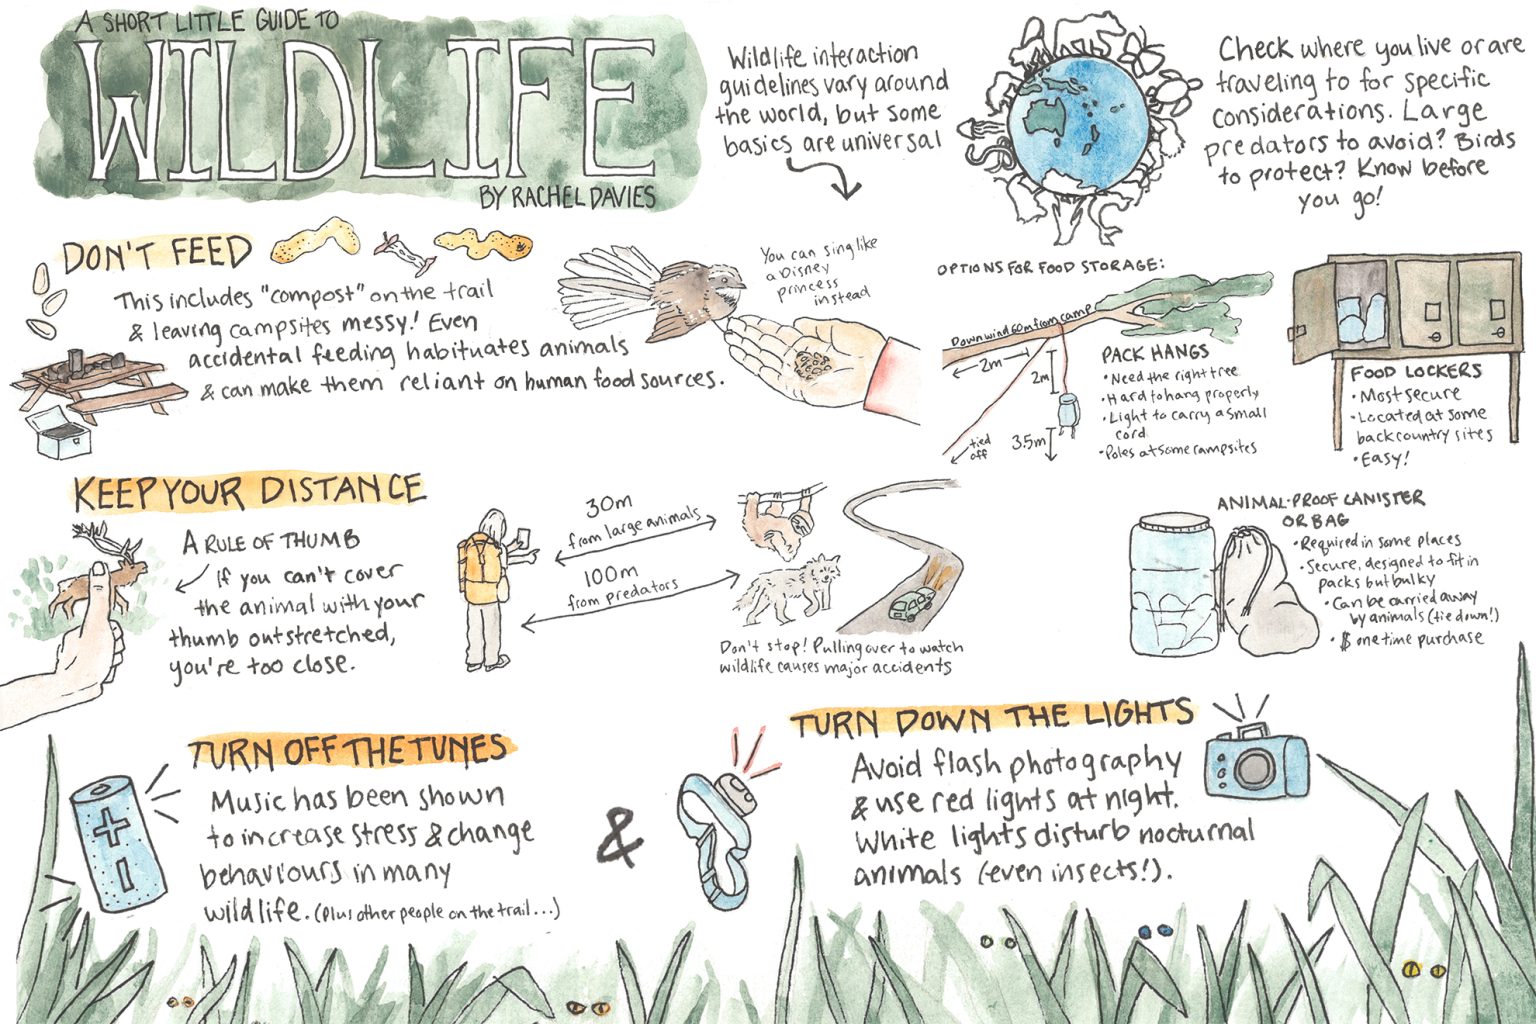 A SHORT LITTLE GUIDE TO
WILDLIFE
BY RACHEL DAVIES
Wildlife interaction
guidelines vary around
the world, but some
basics are universal
Check where you live or are
traveling to for specific
considerations. Large
predators to avoid? Birds
to protect? Know before
you go!
DON'T FEED
This includes "compost" on the trail
& leaving campsites messy! Even
accidental feeding habituates animals
& can make them reliant on human food sources.
You can sing like
a Disney
princess
instead
OPTIONS FOR FOOD STORAGE:
Downwind 60m from camp
2m
2m
3.5m
tied
off
PACK HANGS
• Need the right tree
• Hard to hang properly
• Light to carry a small
cord
• Poles at some campsites
FOOD LOCKERS
• Most secure
• Located at some
backcountry sites
• Easy!
ANIMAL-PROOF CANISTER
OR BAG
• Required in some places
• Secure, designed to fit in
packs but bulky
• Can be carried away
by animals (tie down!)
• $ one time purchase
KEEP YOUR DISTANCE
A RULE OF THUMB
If you can't cover
the animal with your
thumb outstretched,
you're too close.
30m
from large animals
100m
from predators
Don't stop! Pulling over to watch
wildlife causes major accidents
TURN OFF THE TUNES
Music has been shown
to increase stress & change
behaviours in many
wildlife. (plus other people on the trail...)
&
TURN DOWN THE LIGHTS
Avoid flash photography
& use red lights at night.
White lights disturb nocturnal
animals (even insects!).